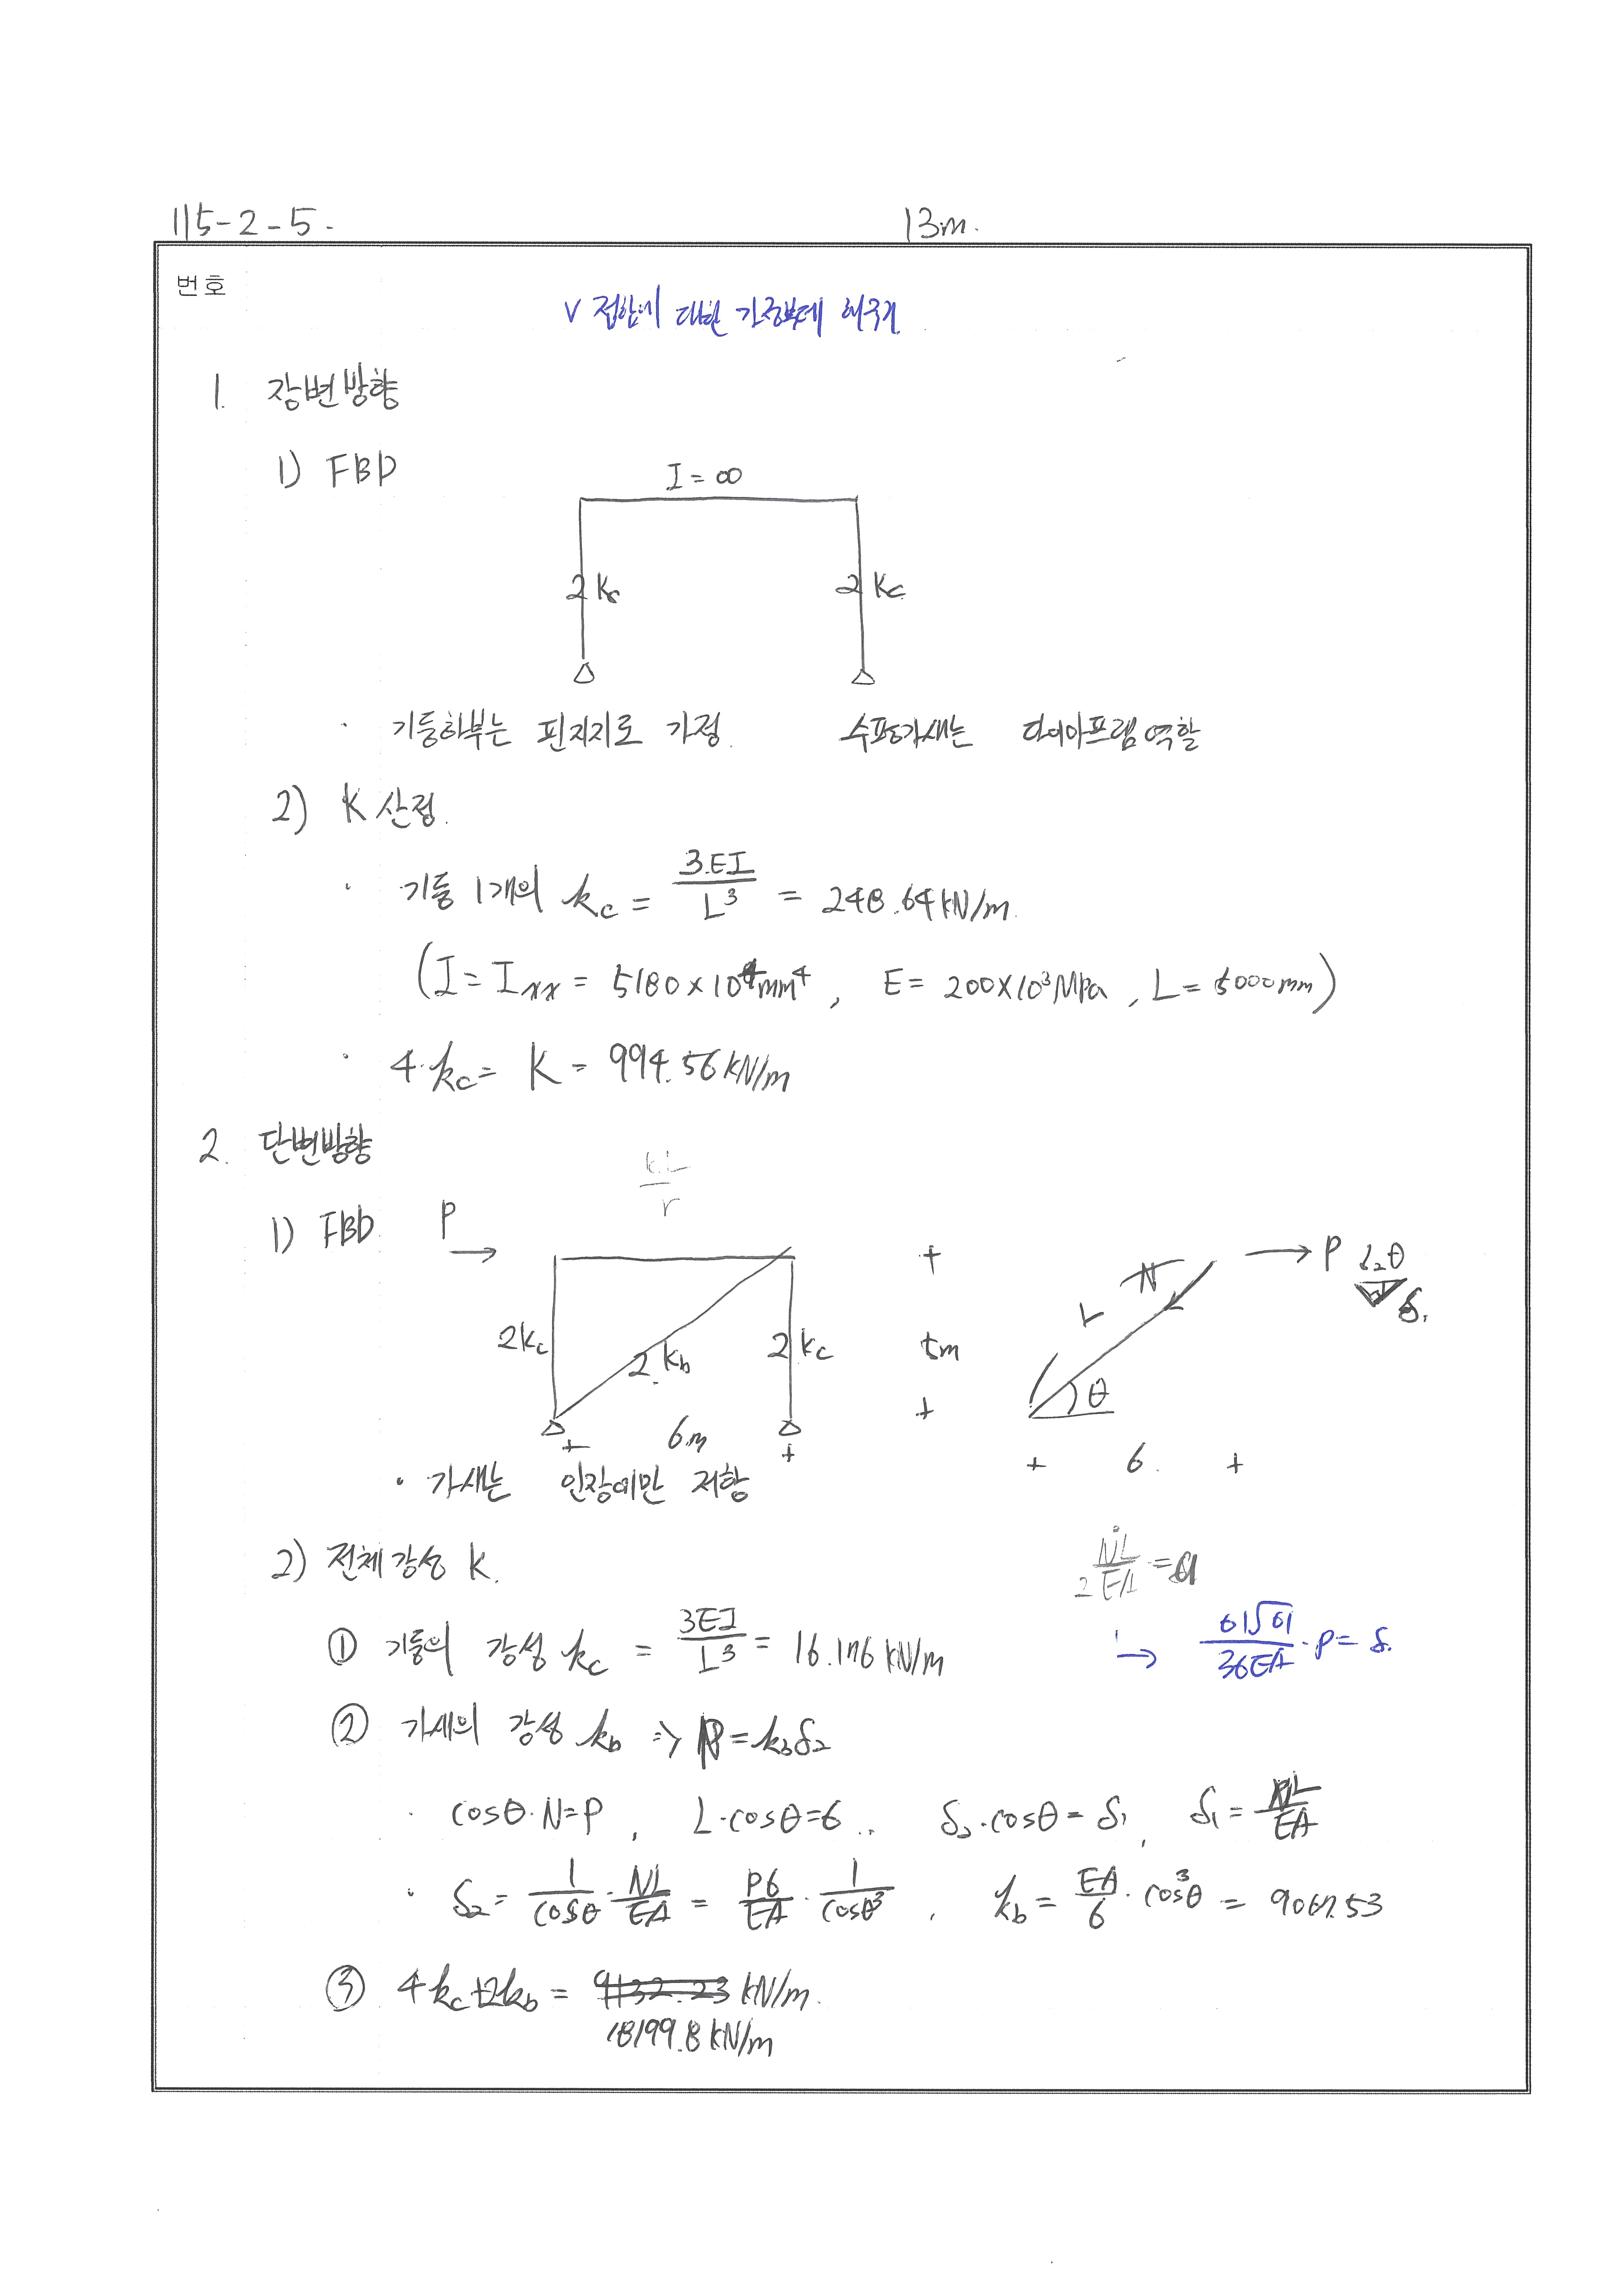 115-2-5.
13m.
번호
V 접합에 대한 가정부터 해주기.
1. 장변방향
1) FBD
I = ∞
2 kc 2 kc
· 기둥하부는 핀지지로 가정. 수평가새는 다이아프램 역할
2) K 산정.
· 기둥 1개의 kc = 3EI/L³ = 248.64 kN/m.
(I = Ixx = 5180×10⁴mm⁴, E = 200×10³MPa, L = 5000mm)
· 4·kc = K = 994.56 kN/m
2. 단변방향
kL/r
1) FBD P
N P δ2 θ
L δ1
2kc 2 kb 2 kc
θ
6m 6.
· 가새는 인장에만 저항
2) 전체강성 K.
① 기둥의 강성 kc = 3EI/L³ = 16.176 kN/m
↳ 61√61/36EA · P = δ.
② 가새의 강성 kb ⇒ P = kbδ2
· cosθ·N=P, L·cosθ=6, δ2·cosθ = δ1, δ1 = NL/EA
· δ2 = 1/cosθ · NL/EA = P6/EA · 1/cosθ³, kb = EA/6 · cos³θ = 9067.53
③ 4kc+2kb = 9132.23 kN/m.
18199.8 kN/m